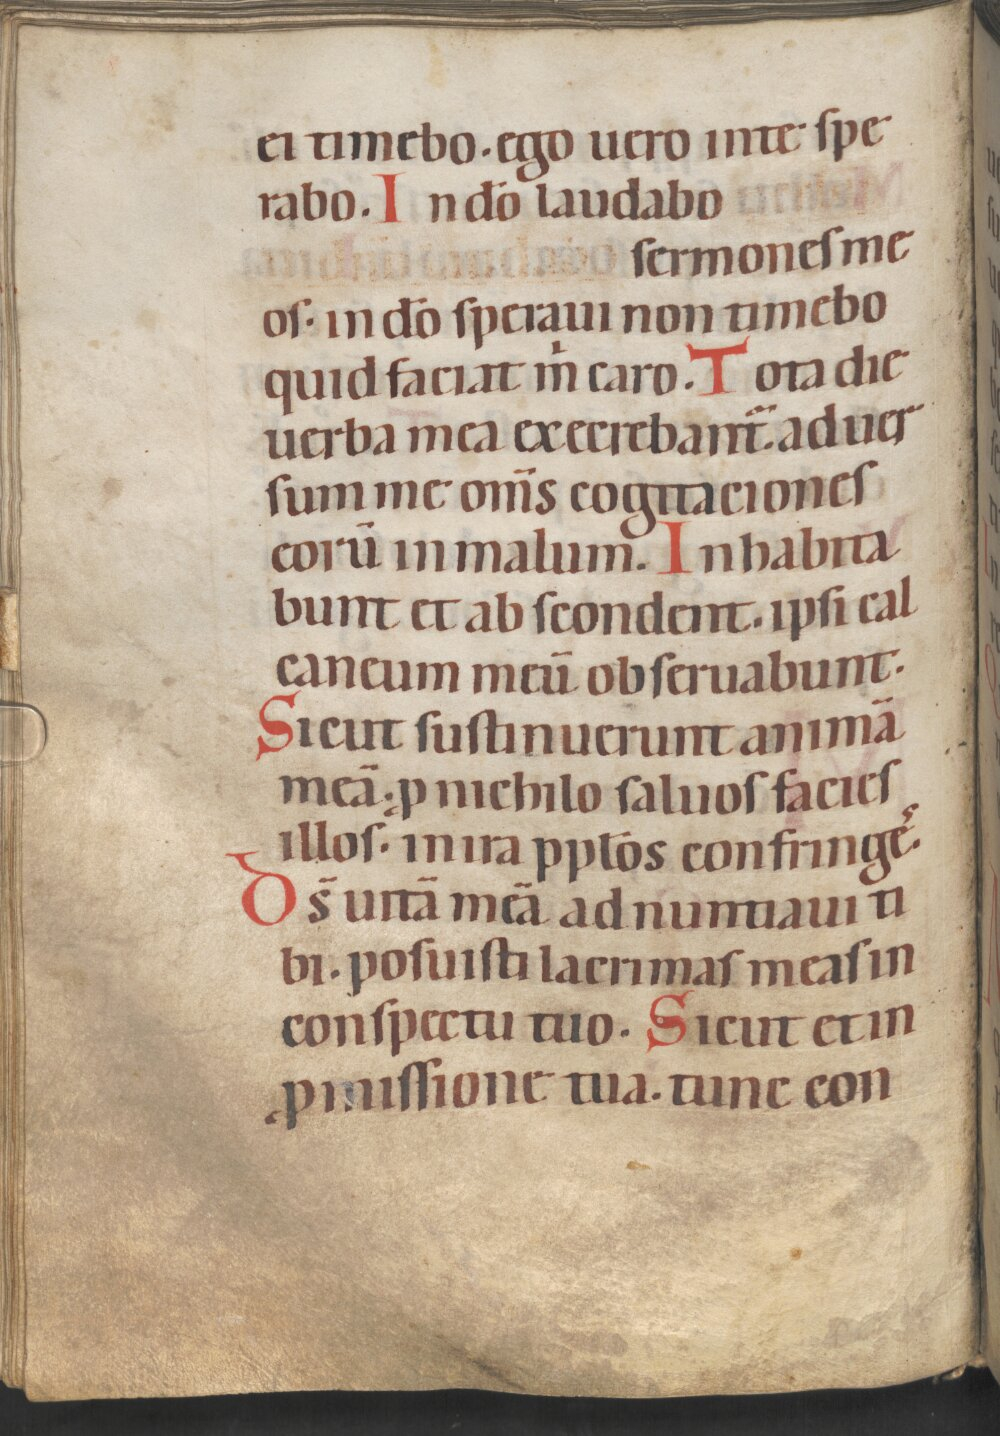 ei timebo. ego uero inte spe
rabo. In dō laudabo
sermones me
os. in dō speraui non timebo
quid faciat m̄ caro. Tota die
uerba mea execrebant̄. aduer
sum me om̄s cogitaciones
eorū in malum. Inhabita
bunt et abscondent. ipsi cal
caneum meū obseruabunt.
Sicut sustinuerunt animā
meā. ꝓ nichilo saluos facies
illos. in ira ppłos confringeˢ.
Ds̄ uitā meā adnuntiaui ti
bi. posuisti lacrimas meas in
conspectu tuo. Sicut et in
ꝓmissione tua. tunc con